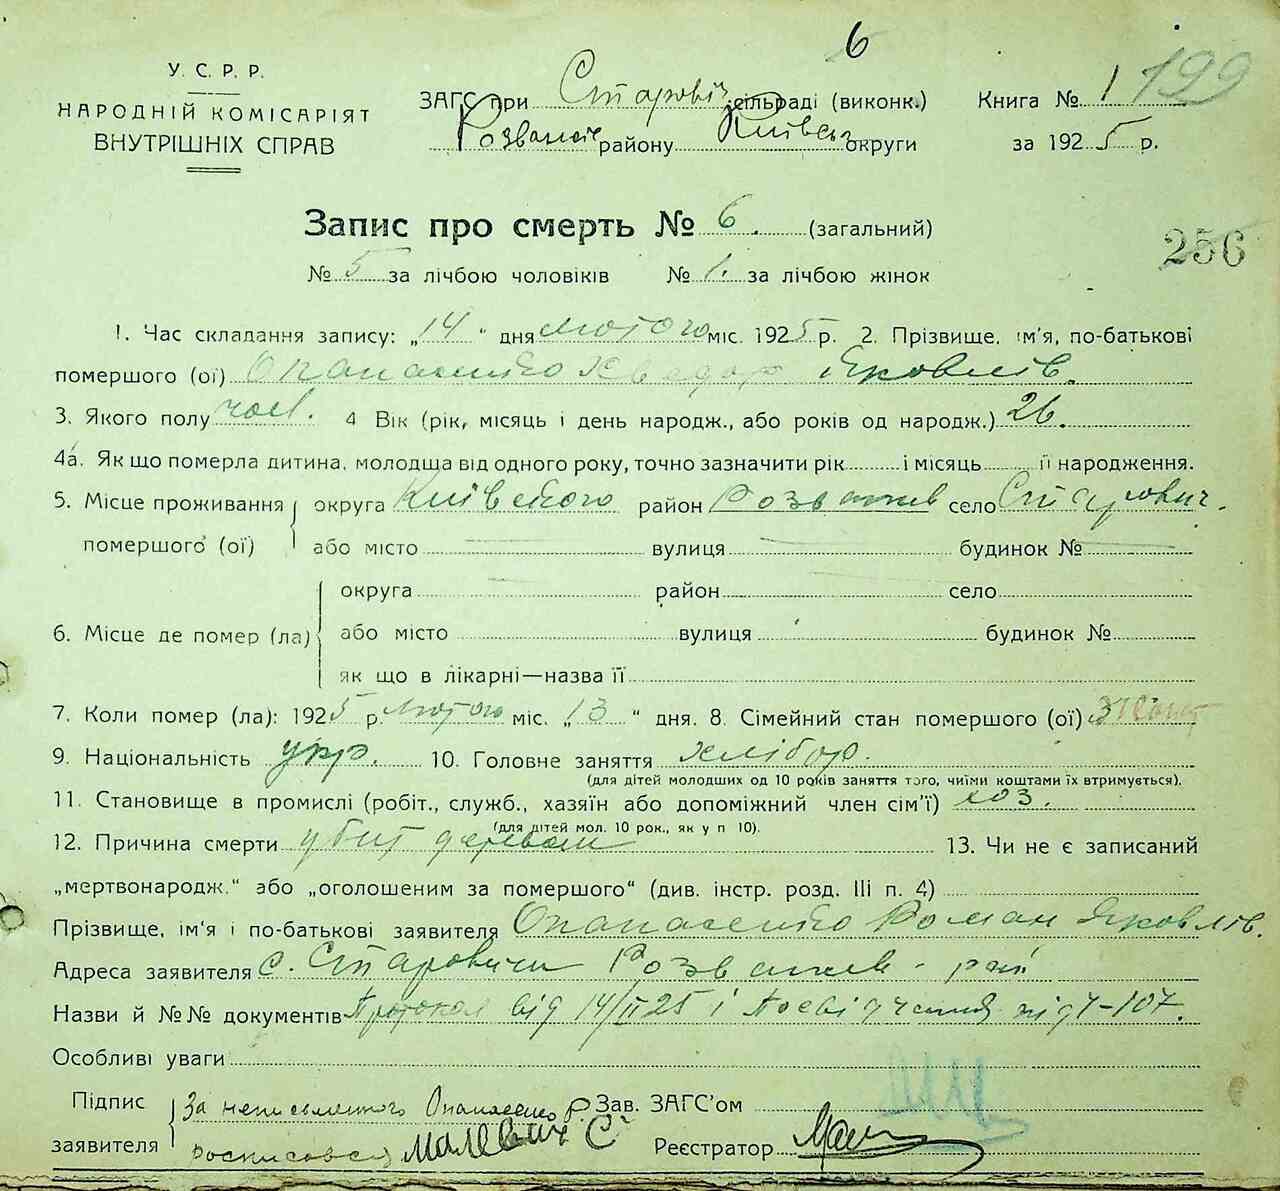 6
У. С. Р. Р.
НАРОДНІЙ КОМІСАРІЯТ
ВНУТРІШНІХ СПРАВ
ЗАГС при Старовіч сільраді (виконк.)
Розважів району Київськ округи
Книга № 1 199
за 1925 р.
Запис про смерть № 6. (загальний)
№ 5 за лічбою чоловіків № 1. за лічбою жінок
256
1. Час складання запису: „14" дня лютого міс. 1925 р. 2. Прізвище, ім'я, по-батькові
помершого (ої) Опанасенко Хведор Яковлів.
3. Якого полу чол. 4 Вік (рік, місяць і день народж., або років од народж.) 26.
4а. Як що померла дитина, молодща від одного року, точно зазначити рік і місяць її народження.
5. Місце проживання округа Київського район Розважів село Старович.
помершого (ої) або місто вулиця будинок №
округа район село
6. Місце де помер (ла) або місто вулиця будинок №
як що в лікарні—назва її
7. Коли помер (ла): 1925 р. лютого міс. „13" дня. 8. Сімейний стан помершого (ої)
9. Національність укр. 10. Головне заняття хлібор.
(для дітей молодших од 10 років заняття того, чиїми коштами їх втримується).
11. Становище в промислі (робіт., служб., хазяїн або допоміжний член сім'ї) хоз.
(для дітей мол. 10 рок., як у п 10).
12. Причина смерти убит деревом 13. Чи не є записаний
„мертвонародж." або „оголошеним за помершого" (див. інстр. розд. III п. 4)
Прізвище, ім'я і по-батькові заявителя Опанасенко Роман Яковлів.
Адреса заявителя с. Старовичи Розважів - рай
Назви й №№ документів Протокол від 14/II 25 і Посвідчення під ч-107.
Особливі уваги
Підпис За неписьменного Опанасенко Р. Зав. ЗАГС'ом
заявителя росписовся Малевич С Реєстратор